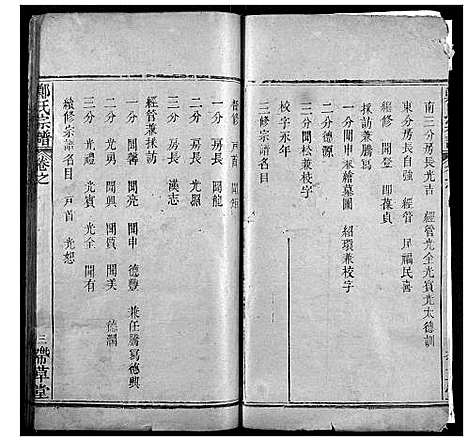 南三分房長光吉 經管光全光賓光太德訓
東分房長自強 經管 民福民喜
經修 開登 即葆貞
採訪兼謄寫
一分開申兼繪墓圖 紹環兼校字
二分德源
三分開松兼校字
校字永年
三修宗譜名目
督修 戶首
一分 房長 開龍
二分 房長 光照
三分 房長 漢志
經管兼採訪
一分 開馨 開亮 開申 德豐 兼任謄寫德興
二分 光勇 開興 開質 開美 德潤
三分 光禮 光賓 光全 開有
續修宗譜名目 戶首 光恕
鄭氏宗譜 卷之
三 帶草堂